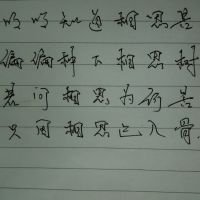 明明知道相思苦
偏偏种下相思树
若问相思为何苦
只因相思已入骨